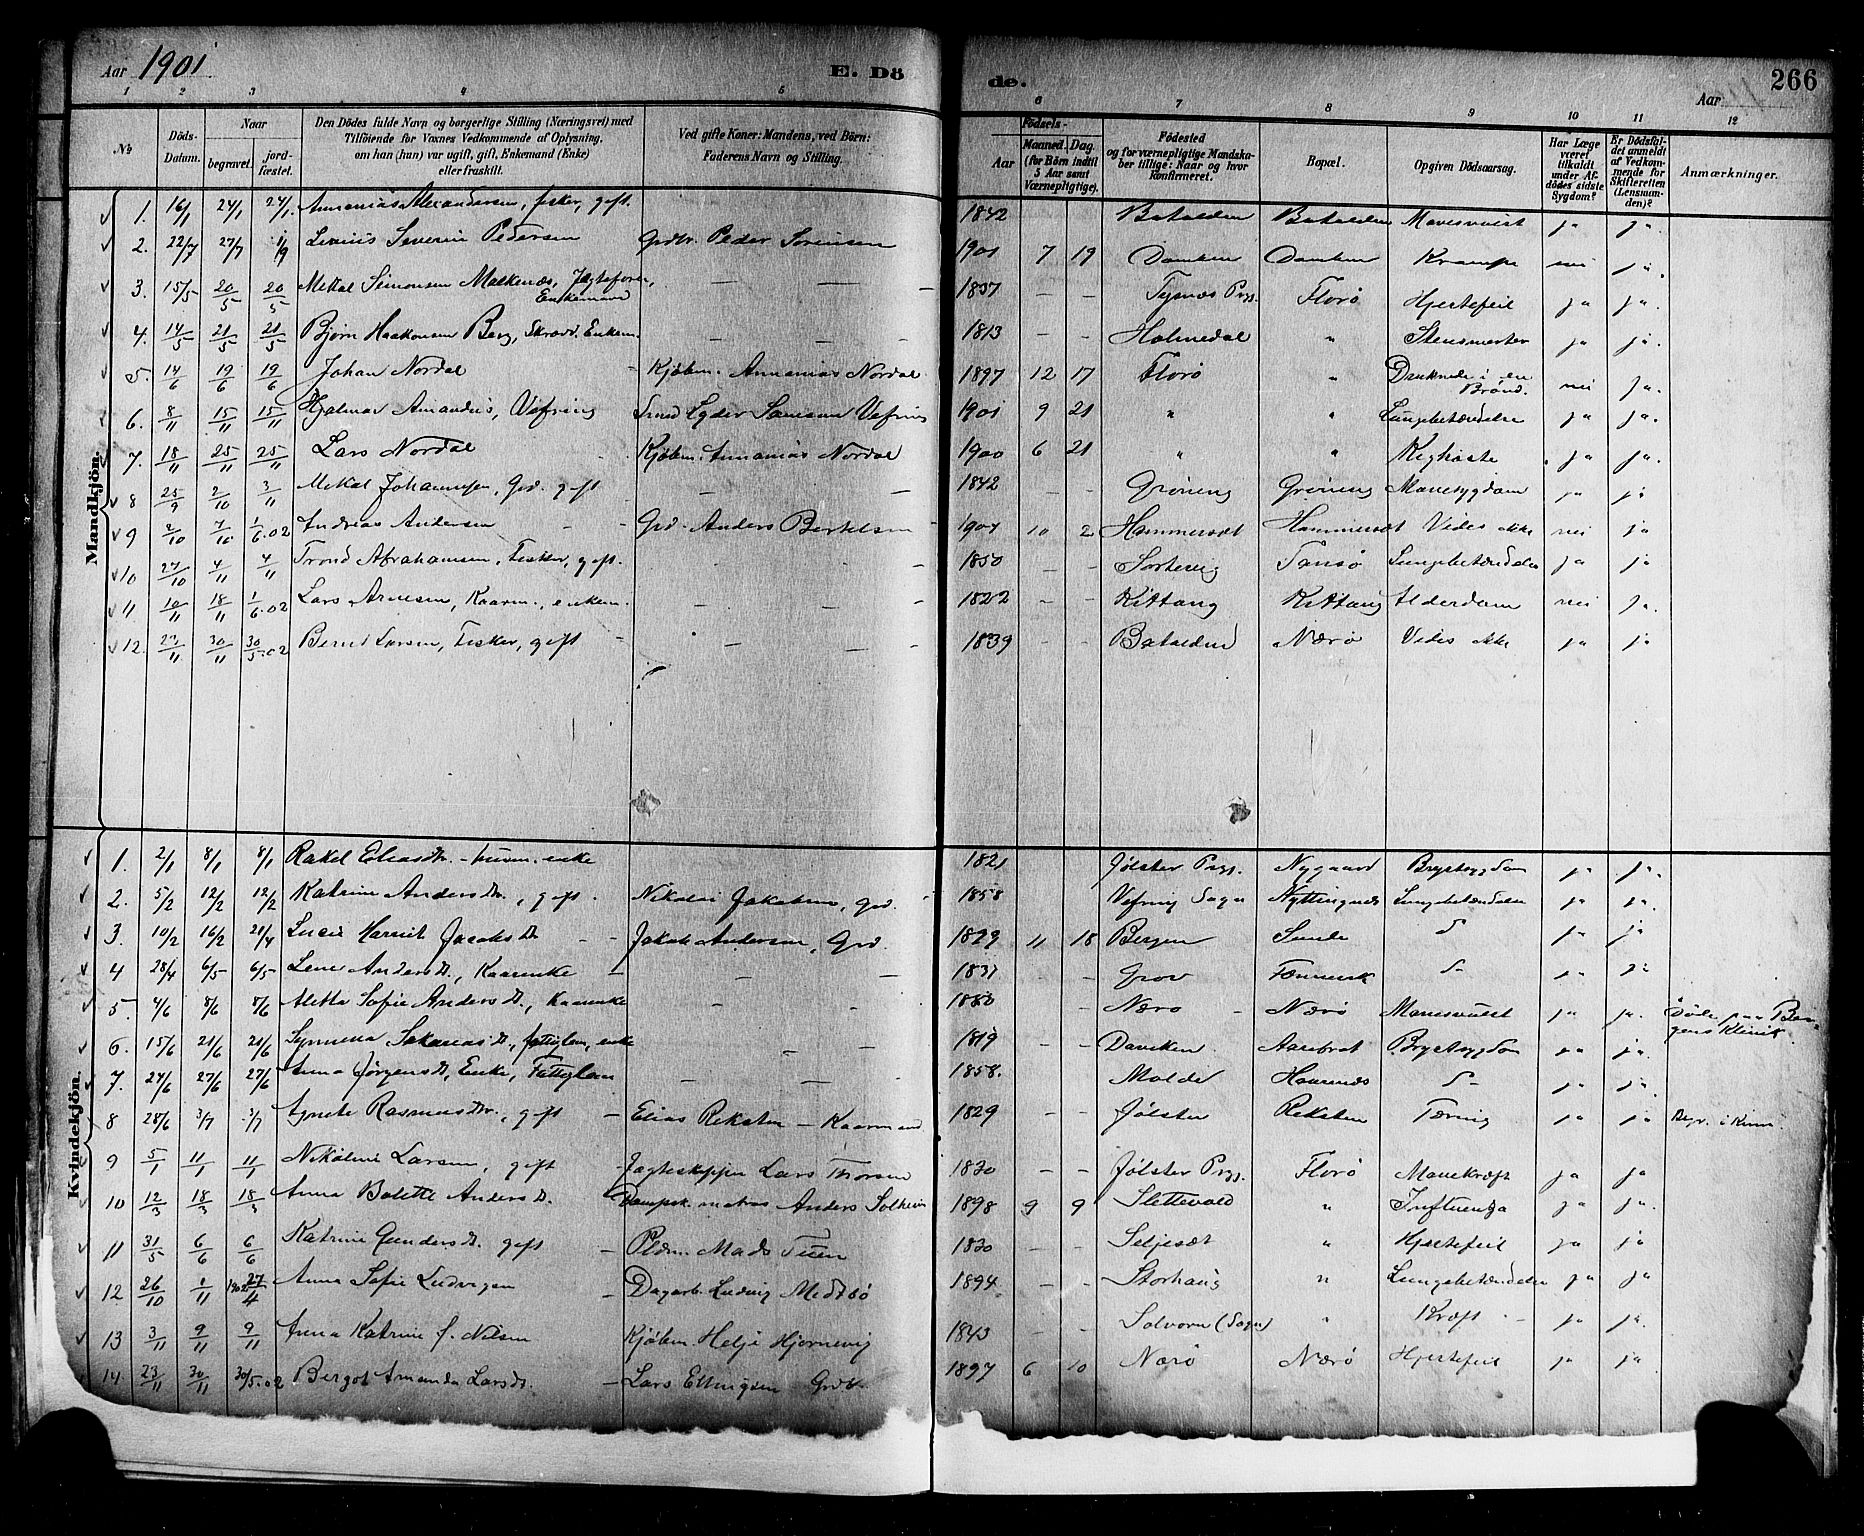 Aar 1901 E. Dö de. Aar 266
1 2 3 4 5 6 7 8 9 10 11 12
No
Döds-Datum.
Naar
begravet.
jord-fæstet.
Den Dödes fulde Navn og borgerlige Stilling (Næringsvei) med
Tilföiende for Voxnes Vedkommende af Oplysning,
om han (hun) var ugift, gift, Enkemand (Enke)
eller fraskilt.
Ved gifte Koner: Mandens, ved Börn:
Faderens Navn og Stilling.
Födsels-
Aar
Maaned. Dag.
(for Börn indtil
5 Aar samt
Værnepligtige).
Födested
og for værnepligtige Mandska-
ber tillige: Naar og hvor
Konfirmeret.
Bopæl.
Opgiven Dödsaarsag.
Har Læge
været
tilkaldt
under Af-
dödes sidste
Sygdom?
Er Dödsfal-
det anmeldt
af Vedkom-
mende for
Skifteretten
(Lensman-
den)?
Anmærkninger.
Mandkjön.
1. 16/1 24/1 24/1 Annanias Alexandersen, fisker, gift. 1842 Batalden Batalden Mavesvulst ja ja.
2. 22/7 27/7 1/9 Severin Pedersen Grdbr. Peder Sørensen 1901 7 19 nei ja.
3. 15/5 20/5 20/5 Mikal Simonsen Enkemand — — — 1837 — — Tysnæs Prgj. Florø Hjertefeil ja ja.
4. 14/5 21/5 21/5 Bjørn Haakonsen Berg, Skrædd. Enkem. — — — 1813 — — Holmedal " Stensmerter ja ja.
5. 14/6 19/6 19/6 Johan Nordal Kjøbm. Annanias Nordal. 1897 12 17 Florø " Druknede i en Brønd. nei ja.
6. 8/11 15/11 15/11 Hjalmar Amandus, Vefring Smed Samsom Vefring 1901 9 21 " " Lungebetændelse ja ja.
7. 18/11 25/11 25/11 Lars Nordal Kjøbm. Annanias Nordal 1900 6 21 " " Kighoste ja ja.
8 25/9 2/10 3/11 Mikal Johannesen, Grd. gift — — — 1842 — — Grøning Grøning Mavesygdom ja ja
9 2/10 7/10 1/6.02 Andreas Andersen Grd. Anders Bertelsen 1901 10 2 Hammerset Hammerset Vides ikke nei ja
10 27/10 4/11 4/11 Trond Abrahamsen, Fisker, gift. 1850 — — Tansø Lungebetændelse ja ja
11 10/11 18/11 1/6.02 Lars Arnesen, Kaarm., enkem. — — 1822 — — Kittang Kittang Alderdom nei ja.
12. 23/11 30/11 30/5.02 Bernt Larsen, Fisker, gift — — — 1839 — — Batalden Nærø Vides ikke ja ja
Kvindekjön.
1. 2/1 8/1 8/1 Rakel Eliasdtr. enke 1821 Jølster Prgj. Nygaard Brystsygdom ja ja.
2. 5/2 12/2 12/2 Katrine Andersdtr., gift. Nikolai Jakobsen, Grd. 1858 Vefring Sogn Nyttingnes Lungebetændelse ja ja.
3. 10/2 16/2 21/4 Lucie Harriet Jacobsdtr Jakob Andersen, Grd. 1899 11 18 Bergen Sunde D ja ja
4 28/4 6/5 6/5 Lene Andersdtr., Kaarenke — — — 1831 — — Grov D- ja ja
5. 4/6 8/6 8/6 Aletta Sofie Andersdtr., Kaarenke — — 1880 — — Nærø Nærø Mavesvulst ja ja. Døde paa Bergens Klinik.
6. 15/6 21/6 21/6 Synneva Sakariasdtr, fattiglem, enke — — 1819 — — Daviken. Aarebrot Brystsygdom ja ja
7. 24/6 27/6 27/6 Anna Jørgensdtr, Enke, Fattiglem — — 1858. Molde D- ja ja
8 28/6 3/7 3/7 Agnete Rasmusdtr., gift — Elias Reksten — Kaarmand 1829 — — Jølster Reksten Tæring ja ja Begr. i Kinn.
9 5/1 11/1 11/1 Nikoline Larsen, gift Jagteskipper Lars Thorsen 1830 — — Jølster Prgj. Florø Mavekræft ja ja
10 12/3 18/3 18/3 Anna Bolette Andersdtr. Dampsk. matros Anders Solheim 1898 9 9 Slettevold " Influenza ja ja
11 31/5 6/6 6/6 Katrine Gundersdtr. gift — Mads 1830 — — Seljeset " Hjertefeil ja ja
12 26/10 1/11 1902 27/4 Anna Sofie Ludvigsen — Dagarb. Ludvig 1894 — — Storhaug " Lungebetændelse ja ja
13 3/11 9/11 9/11 Anna Katrine f. Nilsen Kjøbm. Helje Hjornevig 1843 — — Solvorn (Sogn) " Kræft ja ja.
14 23/11 30/11 30/5.02 Bergot Amanda Larsdt. — Lars Grdbr. 1897 6 10 Nærø Nærø Hjertefeil ja ja